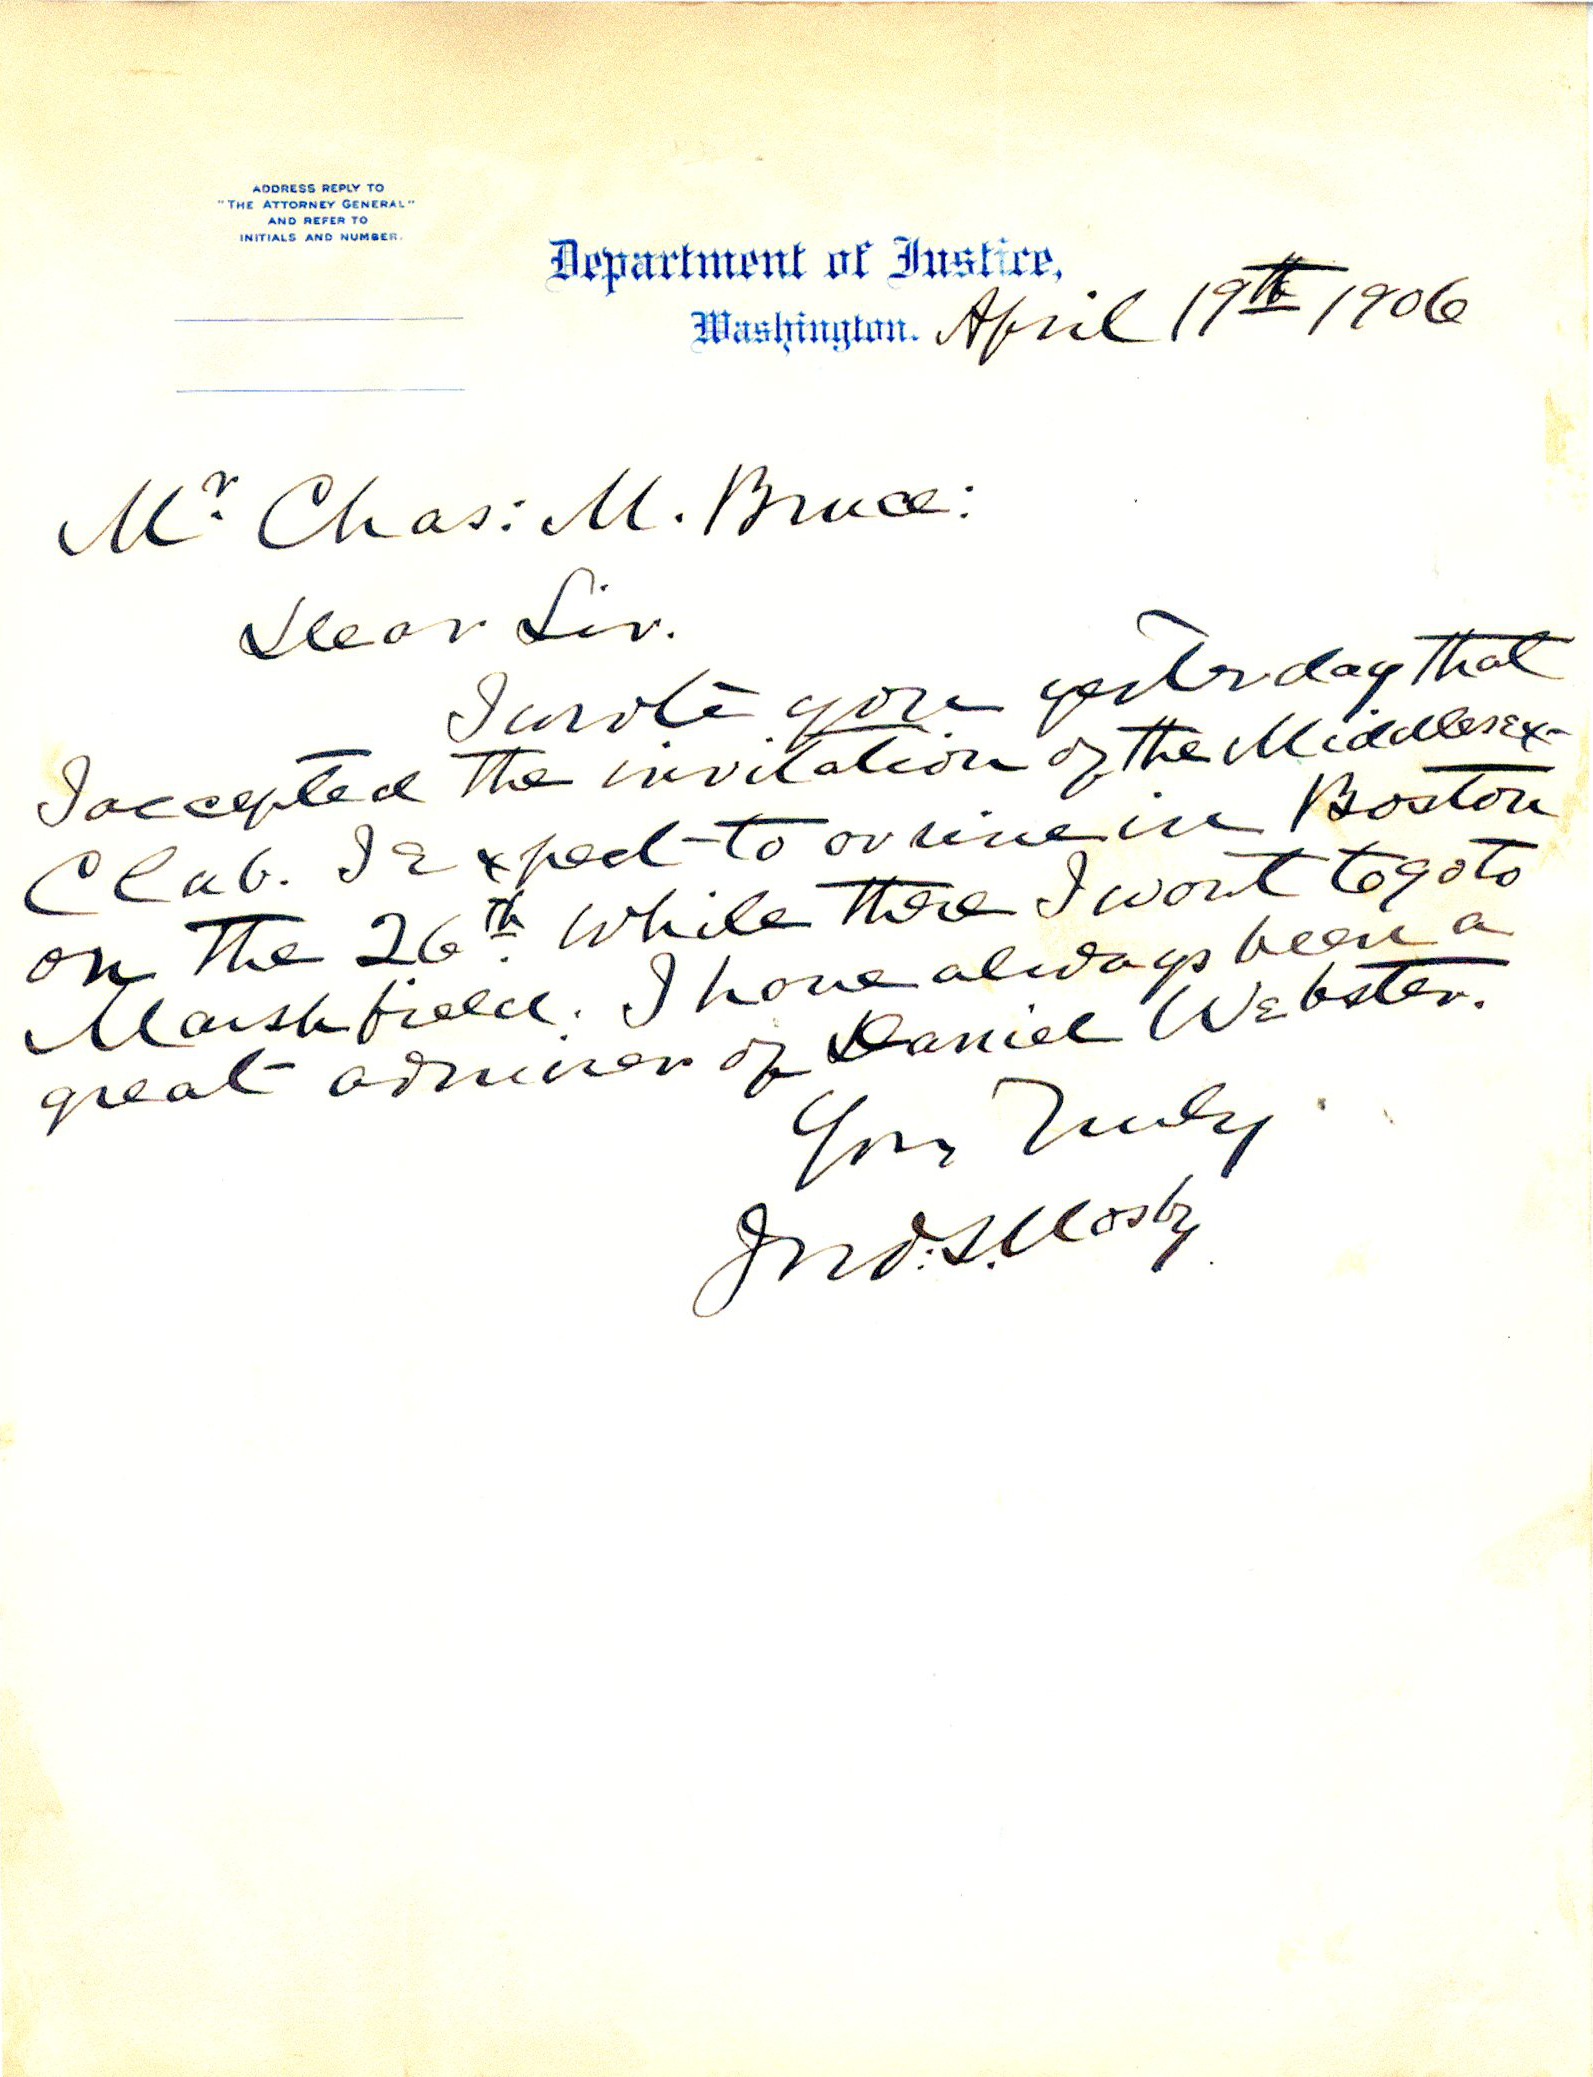 ADDRESS REPLY TO
"THE ATTORNEY GENERAL"
AND REFER TO
INITIALS AND NUMBER.
Department of Justice,
Washington. April 19th 1906
Mr. Chas: M. Bruce:
Dear Sir.
I wrote you yesterday that
I accepted the invitation of the Middlesex
Club. I expect to arrive in Boston
on the 26th. While there I want to go to
Marshfield. I have always been a
great admirer of Daniel Webster.
Yours Truly
Jno: S. Mosby